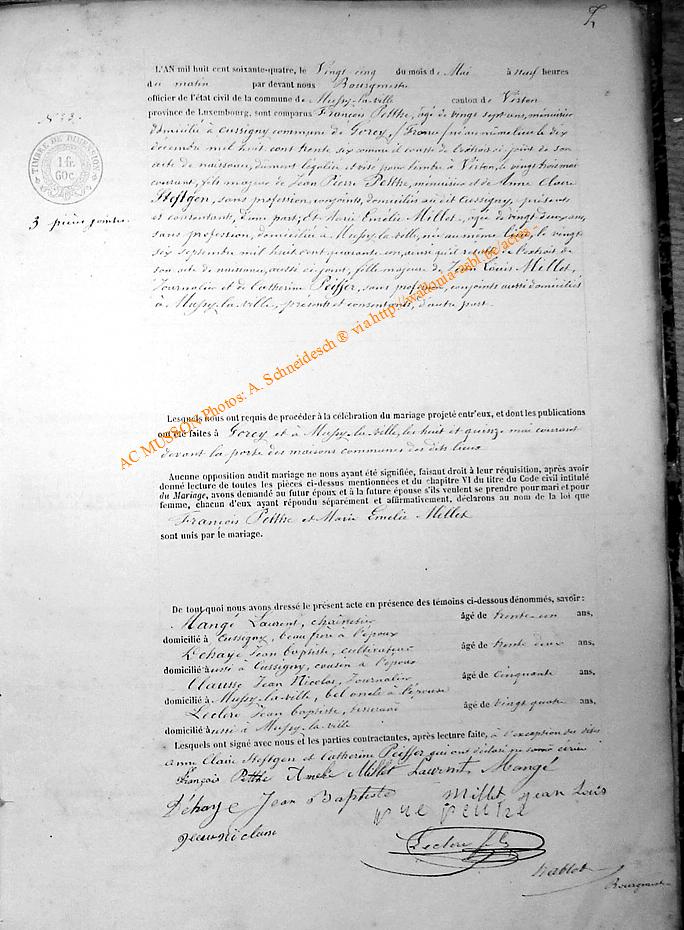 N° 33.
TIMBRE DE DIMENSION
1 fr.
60c.
3 pièces jointes
L'AN mil huit cent soixante-quatre, le Vingt cinq du mois de Mai à neuf heures
du matin par devant nous Bourgmestre
officier de l'état civil de la commune de Mussy-la-ville canton de Virton
province de Luxembourg, sont comparus François Petthe, âgé de vingt sept ans, menuisier
domicilié à Cussigny commune de Gorcy, (France) né au même lieu le dix
décembre mil huit cent trente six comme il conste de l'extrait ci-joint de son
acte de naissance, dûment légalisé et visé pour timbre à Virton, le vingt trois mai
courant, fils majeur de Jean Pierre Petthe, menuisier et de Anne Claire
Steftgen, sans profession, conjoints, domiciliés au dit Cussigny, présents
et consentants, d'une part; Et Marie Emélie Millet, âgée de vingt deux ans,
sans profession, domiciliée à Mussy-la-ville, née au même lieu, le vingt
six septembre mil huit cent quarante un, ainsi qu'il résulte de l'extrait de
son acte de naissance, aussi ci-joint, fille majeure de Jean Louis Millet,
Journalier et de Catherine Peiffer, sans profession, conjoints aussi domiciliés
à Mussy-la-ville, présents et consentants, d'autre part.
AC MUSSON Photos: A. Schneidesch ® via http://wallonia-asbl.be/actes
Lesquels nous ont requis de procéder à la célébration du mariage projeté entr'eux, et dont les publications
ont été faites à Gorcy et à Mussy-la-ville, les huit et quinze mai courant
devant la porte des maisons communes des dits lieux
Aucune opposition audit mariage ne nous ayant été signifiée, faisant droit à leur réquisition, après avoir
donné lecture de toutes les pièces ci-dessus mentionnées et du chapitre VI du titre du Code civil intitulé
du Mariage, avons demandé au futur époux et à la future épouse s'ils veulent se prendre pour mari et pour
femme, chacun d'eux ayant répondu séparément et affirmativement, déclarons au nom de la loi que
François Petthe et Marie Emélie Millet
sont unis par le mariage.
De tout quoi nous avons dressé le présent acte en présence des témoins ci-dessous dénommés, savoir :
Mangé Laurent, âgé de trente-un ans,
domicilié à Cussigny, beau frère à l'époux
Dehaye Jean baptiste, cultivateur âgé de trente deux ans,
domicilié aussi à Cussigny, cousin à l'époux
Clausse Jean Nicolas, Journalier âgé de cinquante ans,
domicilié à Mussy-la-ville, bel oncle à l'épouse
Leclere Jean baptiste, tisserand âgé de vingt quatre ans,
domicilié aussi à Mussy-la-ville
Lesquels ont signé avec nous et les parties contractantes, après lecture faite, à l'exception des dites
Anne Claire Steftgen et Catherine Peiffer qui ont déclaré ne savoir écrire
François Petthe Amelie Millet Laurent Mangé
Déhaye Jean Baptiste Millet Jean Louis
Leclere
Bourgmestre